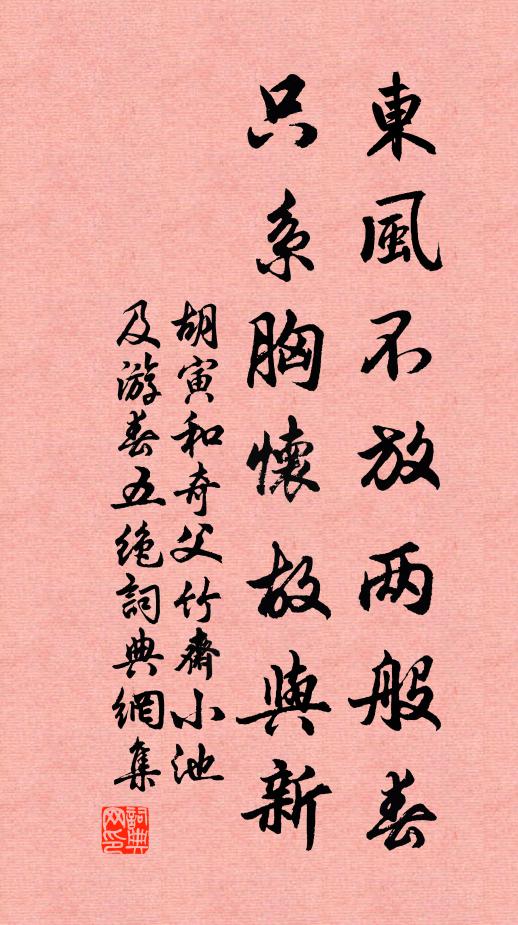 東風不放两般春
只系胸懷故與新
胡寅和奇父竹齋小池
及游春五絶詞典網集
詞典
网印